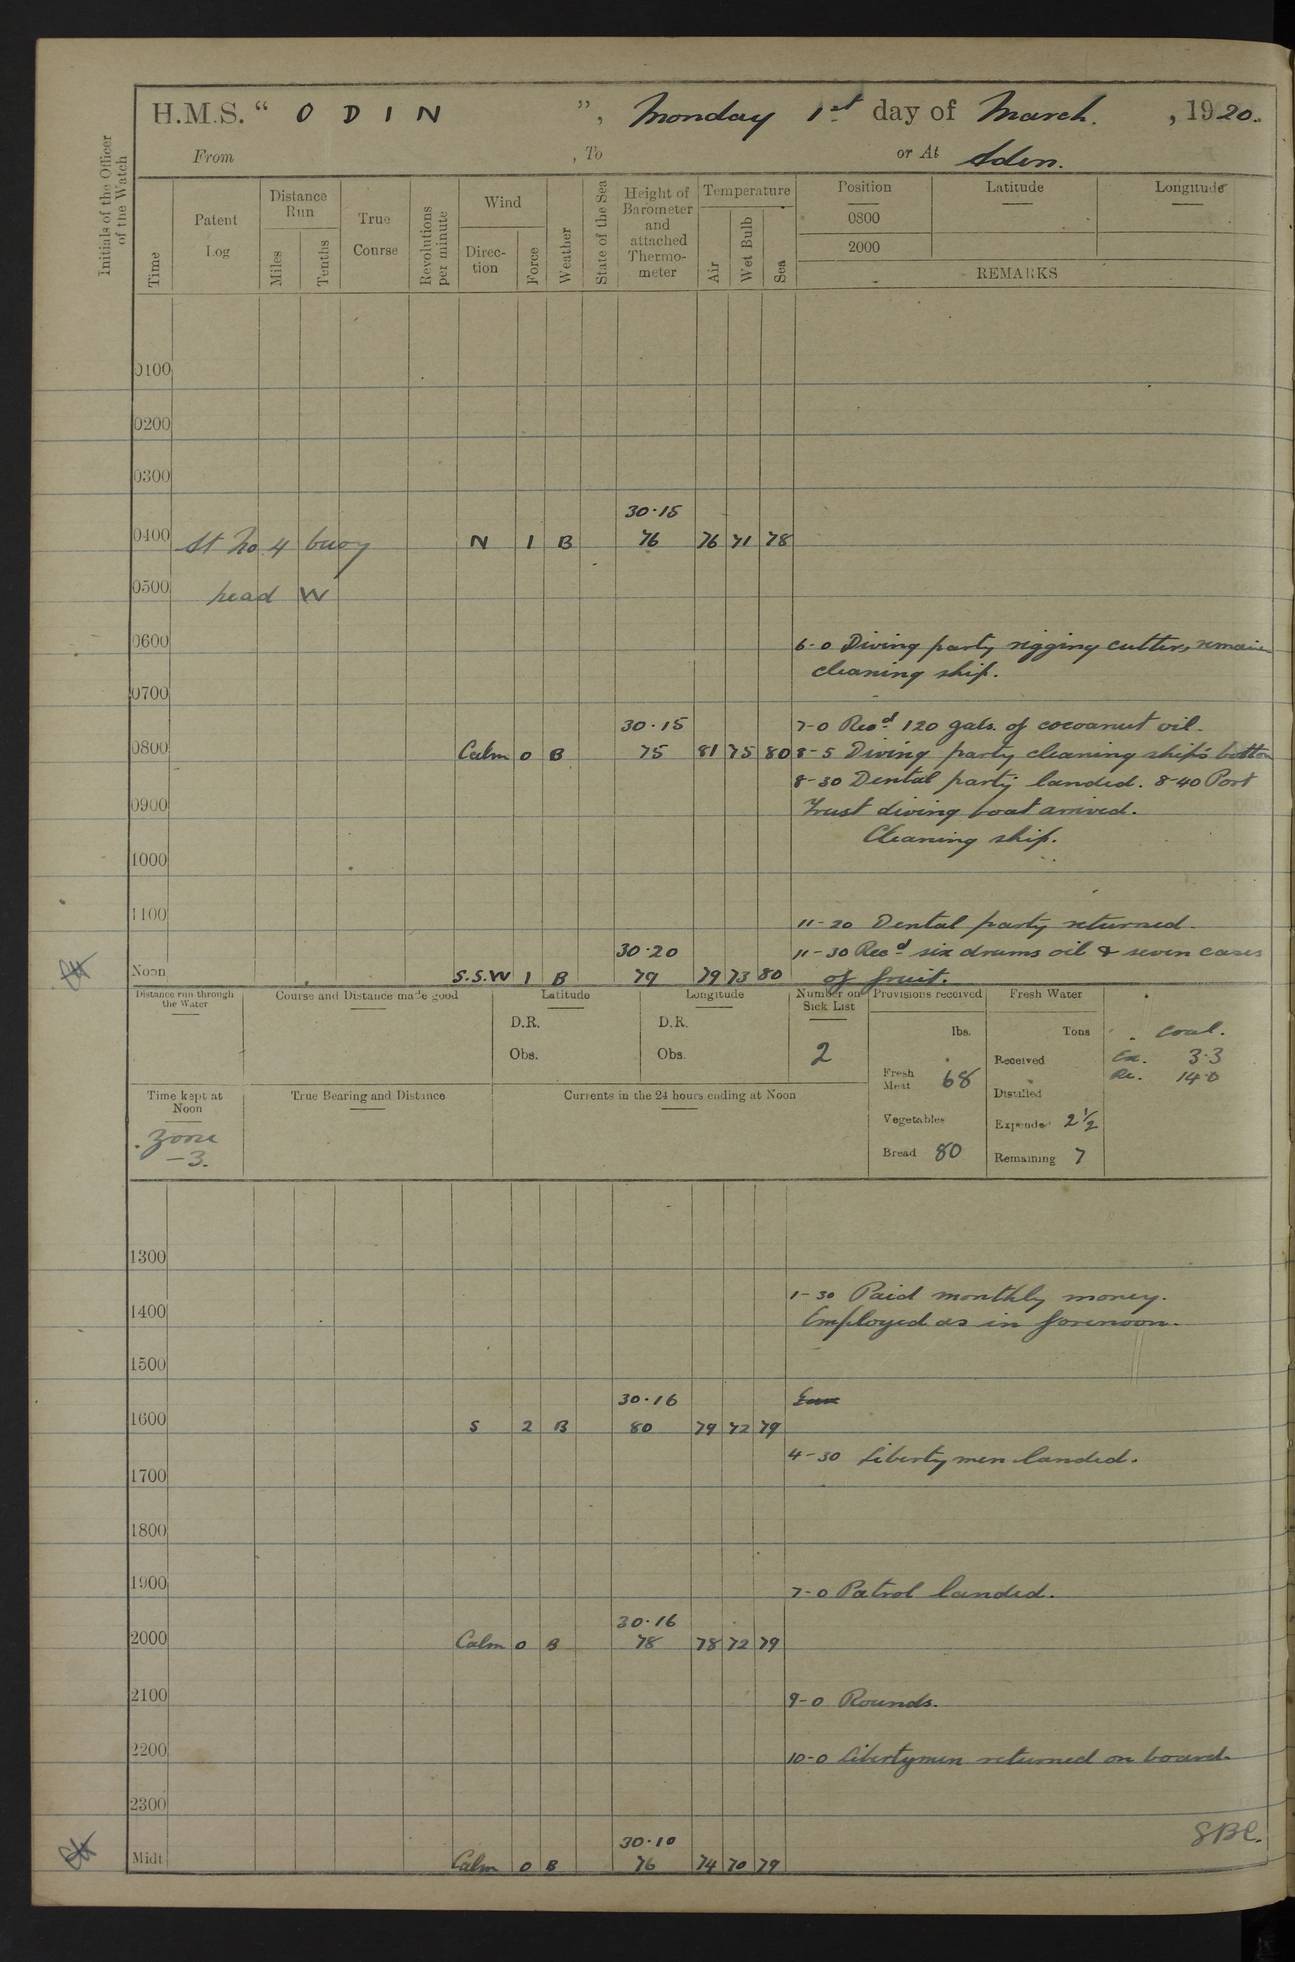 H.M.S. “ ODIN ”, Monday 1st day of March. , 1920.
From , To or At Aden.
Initials of the Officer of the Watch
Time
Patent Log
Distance Run
Miles
Tenths
True Course
Revolutions per minute
Wind
Direction
Force
Weather
State of the Sea
Height of Barometer and attached Thermometer
Temperature
Air
Wet Bulb
Sea
Position Latitude Longitude
0800
2000
REMARKS
0100
0200
0300
30·15
0400 At No 4 buoy N 1 B 76 76 71 78
0500 head W
0600 6-0 Diving party rigging cutter, remain
cleaning ship.
0700
30·15 7-0 Recd 120 gals. of cocoanut oil.
0800 Calm 0 B 75 81 75 80 8-5 Diving party cleaning ship's bottom
8-30 Dental party landed. 8-40 Port
0900 Trust diving boat arrived.
Cleaning ship.
1000
1100 11-20 Dental party returned.
30·20 11-30 Recd six drums oil & seven cases
Noon S.S.W 1 B 79 79 73 80 of fruit.
Distance run through the Water
Course and Distance made good
Latitude
D.R.
Obs.
Longitude
D.R.
Obs.
Number on Sick List
2
Provisions received
lbs.
Fresh Meat 68
Vegetables
Bread 80
Fresh Water
Tons
Received
Distilled
Expended 2½
Remaining 7
Coal.
Ex. 3·3
Re. 14·0
Time kept at Noon
Zone
-3.
True Bearing and Distance
Currents in the 24 hours ending at Noon
1300
1-30 Paid monthly money.
1400 Employed as in forenoon.
1500
30·16
1600 S 2 B 80 79 72 79
4-30 Libertymen landed.
1700
1800
1900 7-0 Patrol landed.
30·16
2000 Calm 0 B 78 78 72 79
2100 9-0 Rounds.
2200 10-0 Libertymen returned on board.
2300
30·10
Midt Calm 0 B 76 74 70 79